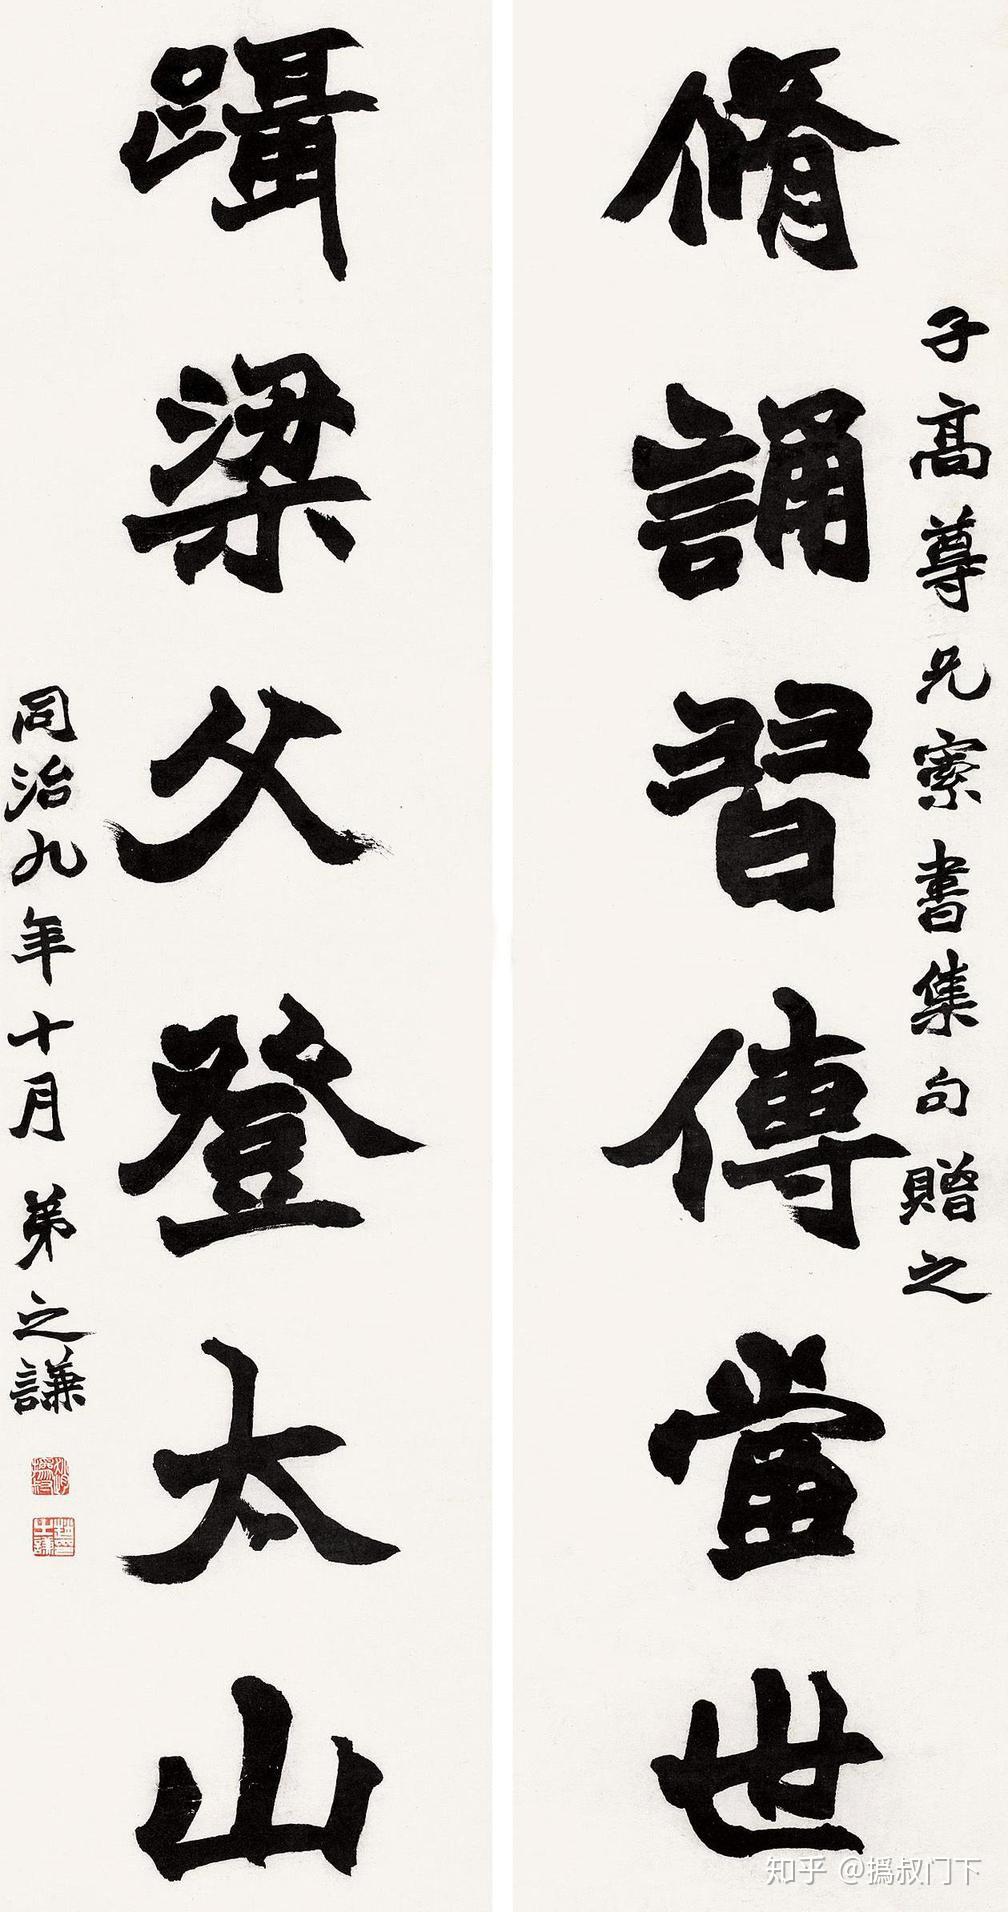 子高尊兄索書集句贈之
脩誦習傳當世
躡梁父登太山
同治九年十月 弟之謙
趙之謙
知乎 @撝叔门下